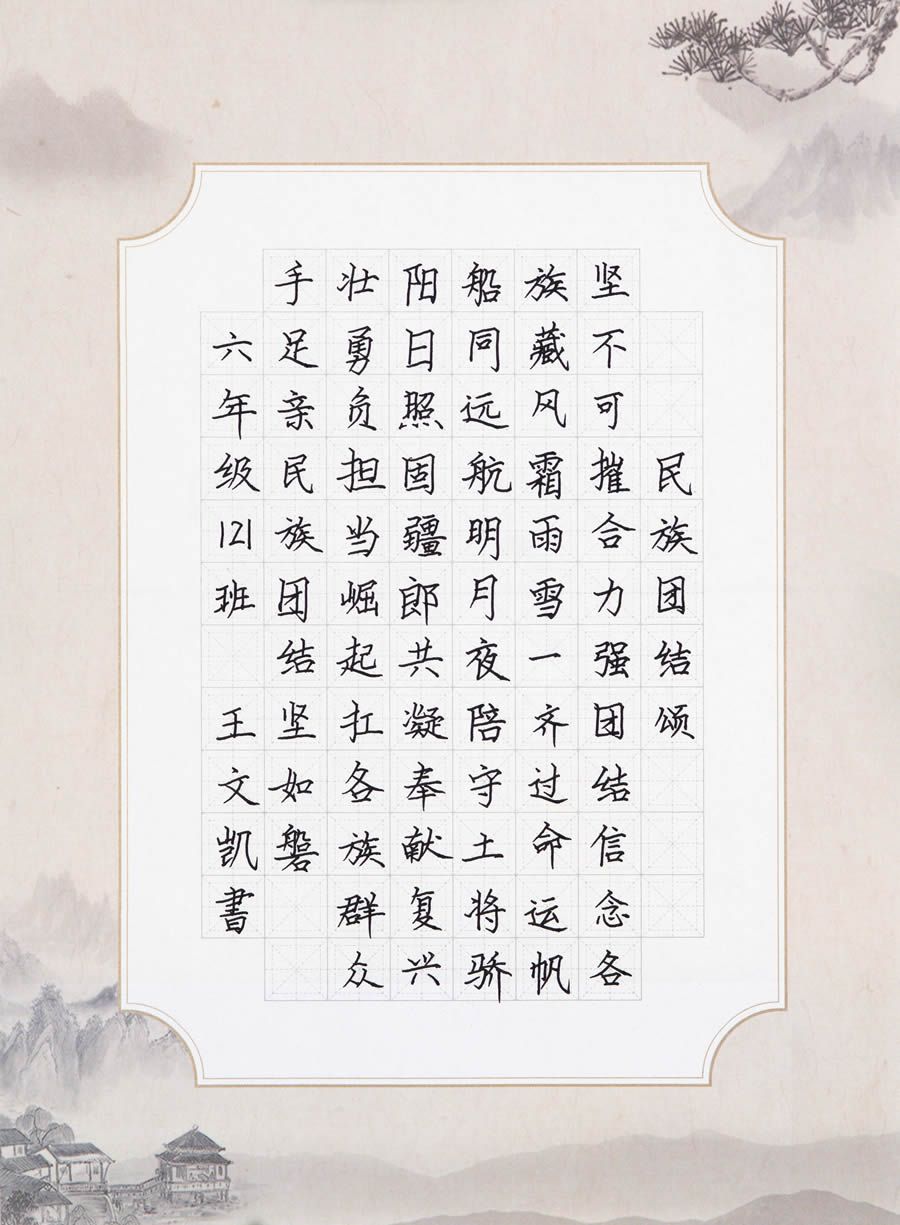 民族团结颂
坚不可摧合力强团结信念各
族藏风霜雨雪一齐过命运帆
船同远航明月夜陪守土将骄
阳日照固疆郎共凝奉献复兴
壮勇负担当崛起扛各族群众
手足亲民族团结坚如磐
六年级121班 王文凯書